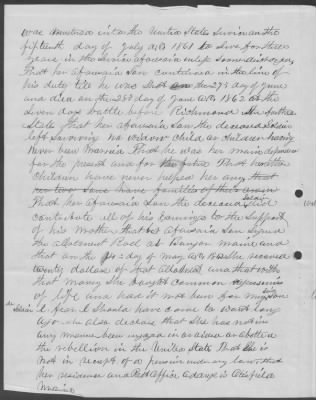 was mustered into the United States Service on the
fifteenth day of July AD 1861 to serve for three
years in the Service aforesaid unless sooner discharged
That her aforesaid Son continued in the line of
his duty till he was Shot on the 27th day of June
and died on the 28th day of June AD 1862 at the
seven days battle before Richmond She further
States that her aforesaid Son the deceased Soldier
left Surviving no widow Child or Children having
never been married That he was her main dependence
for the present and for the future That her other
Children have never helped her any that
her two Sons have families of their own
That her aforesaid Son the deceased Soldier did
contribute all of his earnings to the Support
of his Mother that her aforesaid Son Signed
the allotment Roll at Bangor Maine and
that on the day of May AD 1862 She received
twenty dollars of that allotment and that with
that money She bought common
of life and had it not been for my Son
I fear I Should have come to want long
ago She also declares that She has not in
any manner been engaged in or aided or abetted
the rebellion in the United States That She is
not in receipt of a pension under any law that
her residence and Post Office address is
Maine